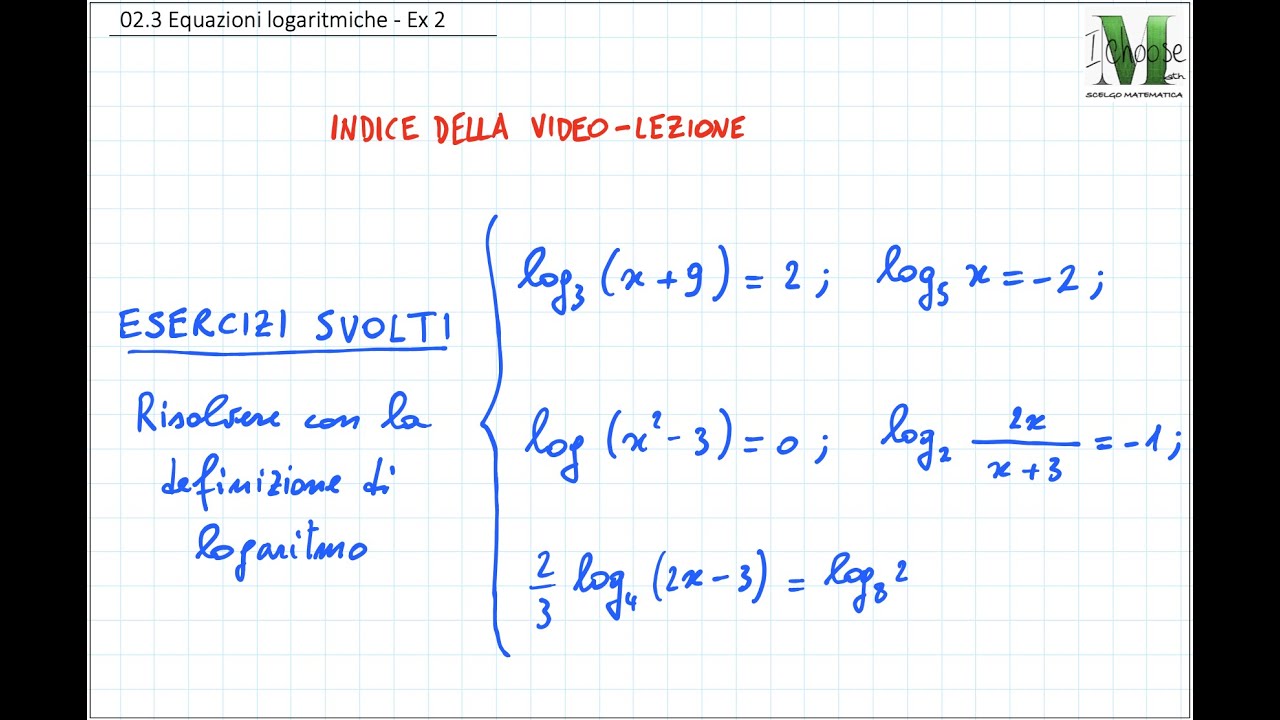 02.3 Equazioni logaritmiche - Ex 2
I Choose Math
SCELGO MATEMATICA
INDICE DELLA VIDEO-LEZIONE
ESERCIZI SVOLTI
Risolvere con la
definizione di
logaritmo
log₃ (x+9) = 2 ; log₅ x = -2 ;
log (x² - 3) = 0 ; log₂ 2x/(x+3) = -1 ;
2/3 log₄ (2x-3) = log₈ 2